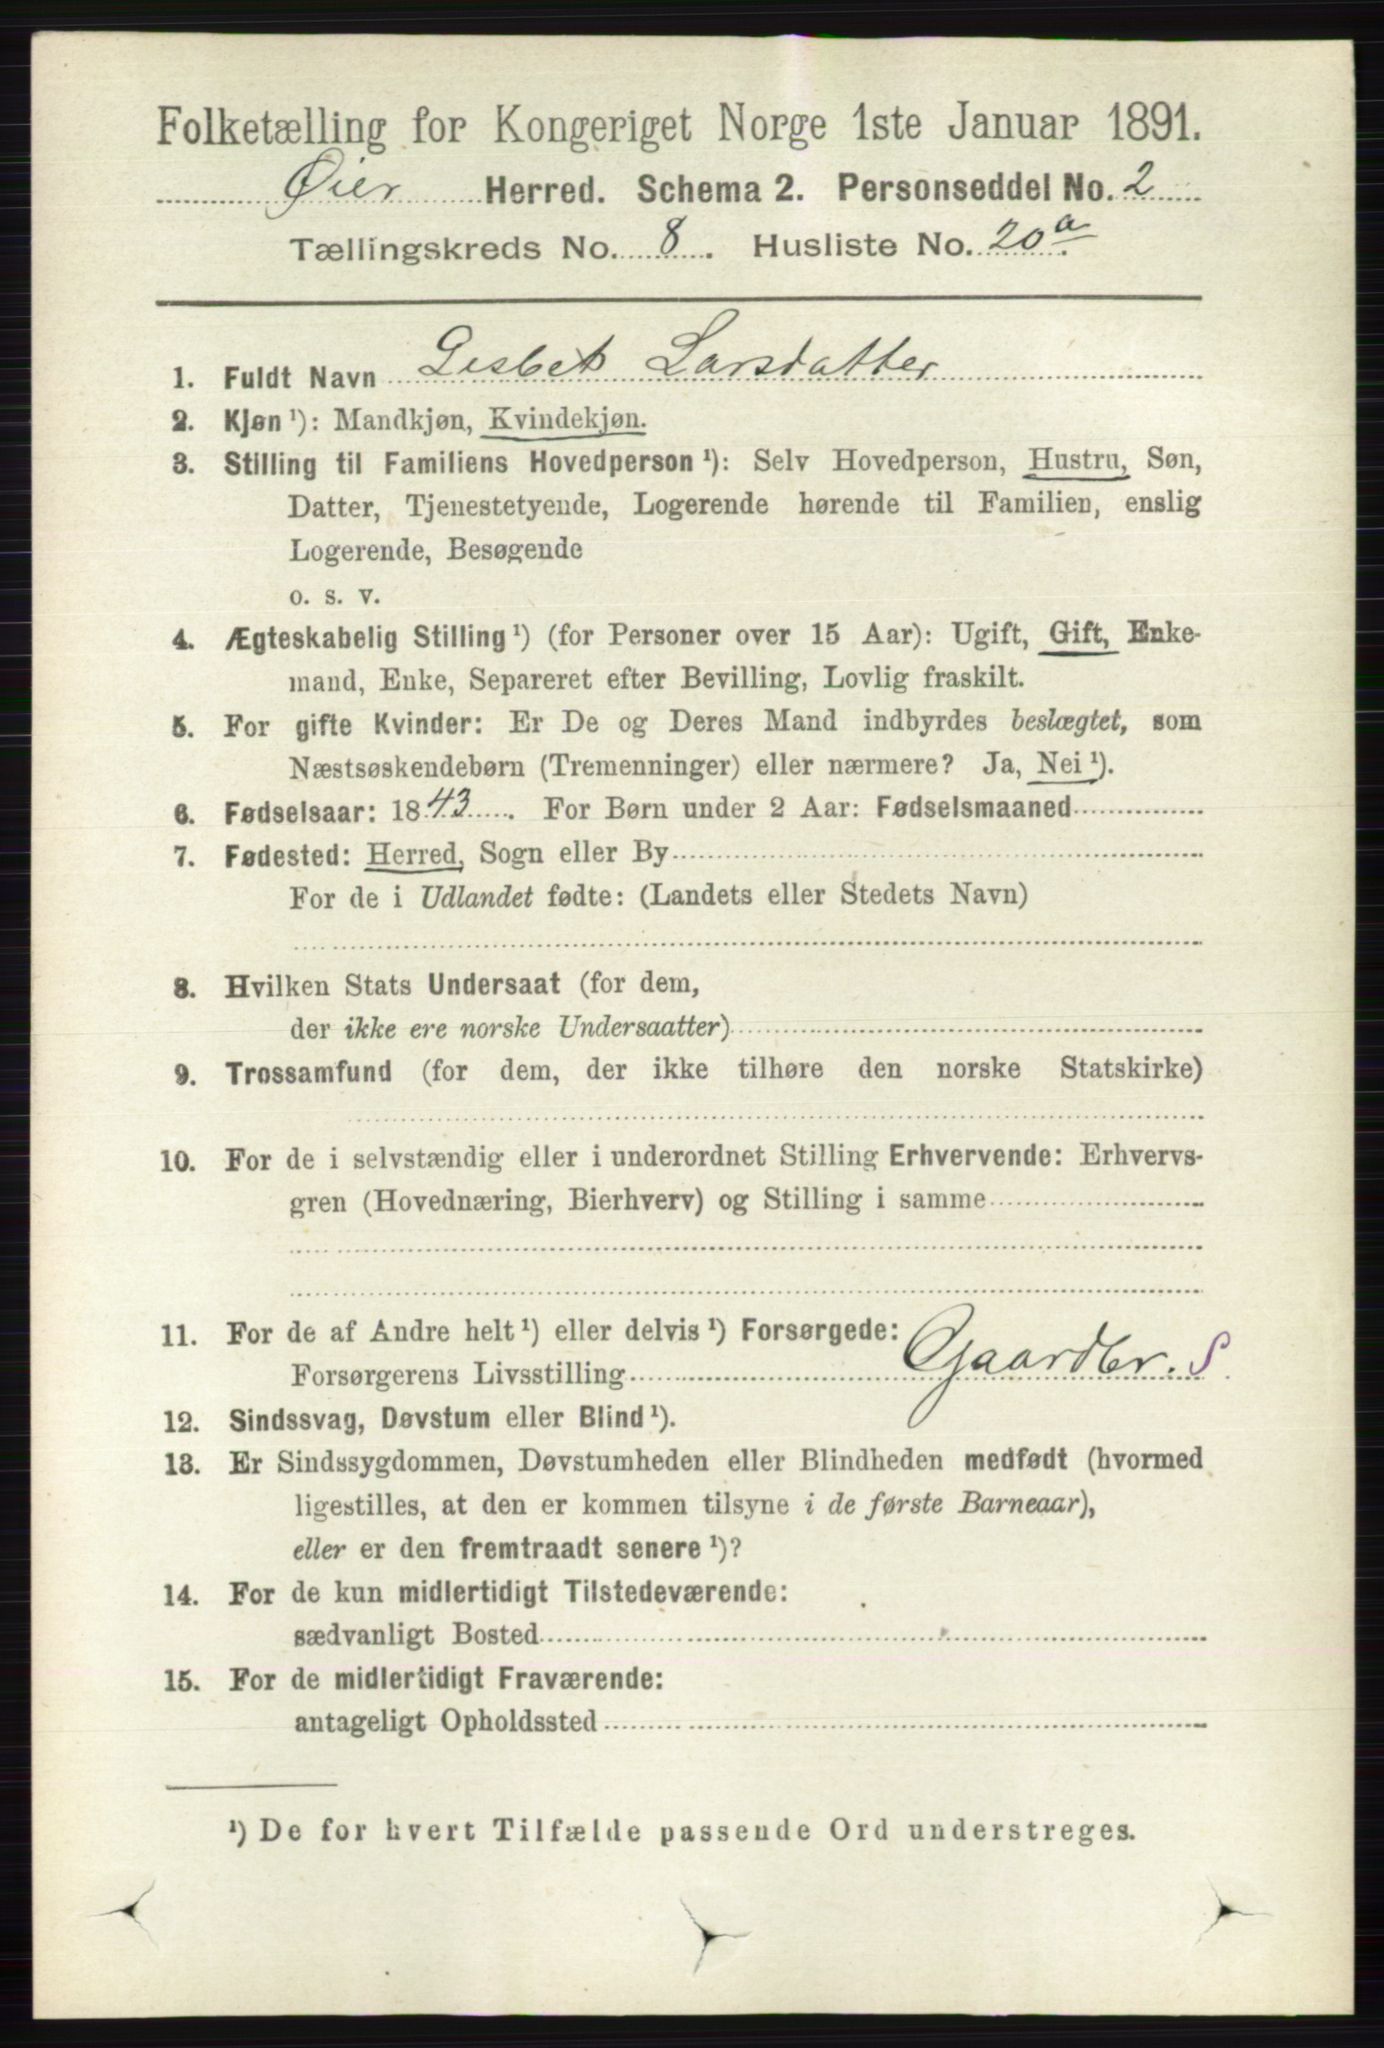 Folketælling for Kongeriget Norge 1ste Januar 1891.
Øier Herred. Schema 2. Personseddel No. 2
Tællingskreds No. 8. Husliste No. 20a
1. Fuldt Navn Lisbet Larsdatter
2. Kjøn ¹): Mandkjøn, Kvindekjøn.
3. Stilling til Familiens Hovedperson ¹): Selv Hovedperson, Hustru, Søn,
Datter, Tjenestetyende, Logerende hørende til Familien, enslig
Logerende, Besøgende
o. s. v.
4. Ægteskabelig Stilling ¹) (for Personer over 15 Aar): Ugift, Gift, Enke-
mand, Enke, Separeret efter Bevilling, Lovlig fraskilt.
5. For gifte Kvinder: Er De og Deres Mand indbyrdes beslægtet, som
Næstsøskendebørn (Tremenninger) eller nærmere? Ja, Nei ¹).
6. Fødselsaar: 1843. For Børn under 2 Aar: Fødselsmaaned
7. Fødested: Herred, Sogn eller By
For de i Udlandet fødte: (Landets eller Stedets Navn)
8. Hvilken Stats Undersaat (for dem,
der ikke ere norske Undersaatter)
9. Trossamfund (for dem, der ikke tilhøre den norske Statskirke)
10. For de i selvstændig eller i underordnet Stilling Erhvervende: Erhvervs-
gren (Hovednæring, Bierhverv) og Stilling i samme
11. For de af Andre helt ¹) eller delvis ¹) Forsørgede:
Forsørgerens Livsstilling Gaardbr. S
12. Sindssvag, Døvstum eller Blind ¹).
13. Er Sindssygdommen, Døvstumheden eller Blindheden medfødt (hvormed
ligestilles, at den er kommen tilsyne i de første Barneaar),
eller er den fremtraadt senere ¹)?
14. For de kun midlertidigt Tilstedeværende:
sædvanligt Bosted
15. For de midlertidigt Fraværende:
antageligt Opholdssted
¹) De for hvert Tilfælde passende Ord understreges.